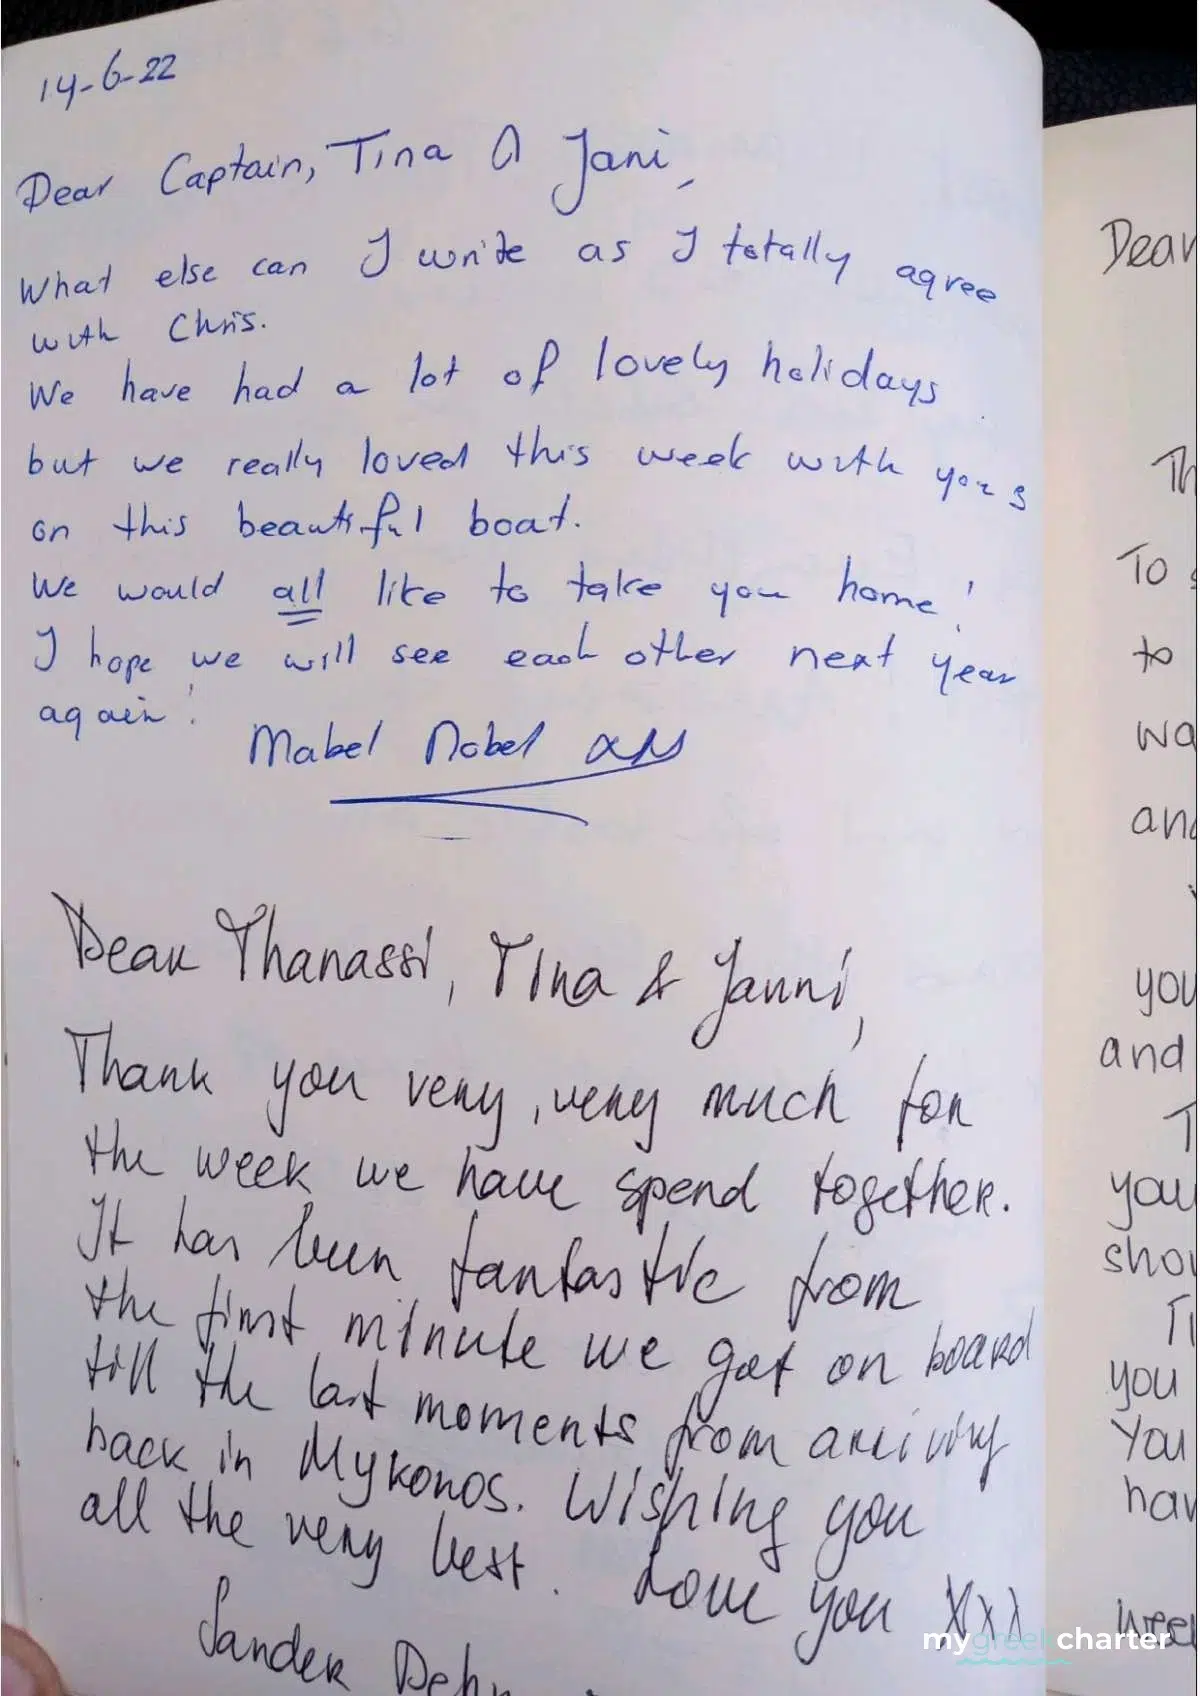 14-6-22
Dear Captain, Tina & Jani,
What else can I write as I totally agree
with Chris.
We have had a lot of lovely holidays
but we really loved this week with you
on this beautiful boat.
We would all like to take you home!
I hope we will see each other next year
again!
Mabel Nobel
Dear Thanassi, Tina & Janni,
Thank you very, very much for
the week we have spend together.
It has been fantastic from
the first minute we got on board
till the last moments from arriving
back in Mykonos. Wishing you
all the very best. Love you XXX
Sander
mygreekcharter
Dear
Th
To
to
wa
and
you
and
T
you
sho
Ti
you
You
hav
wee